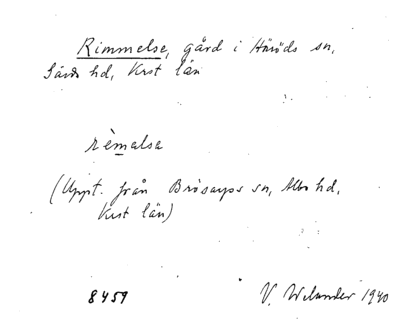 Rimmelse, gård i Hörröds sn,
Gärds hd, Krst län
rèmalsa
(Uppt. från Brösarps sn, Albo hd,
Krst län)
8459 V. Welander 1940